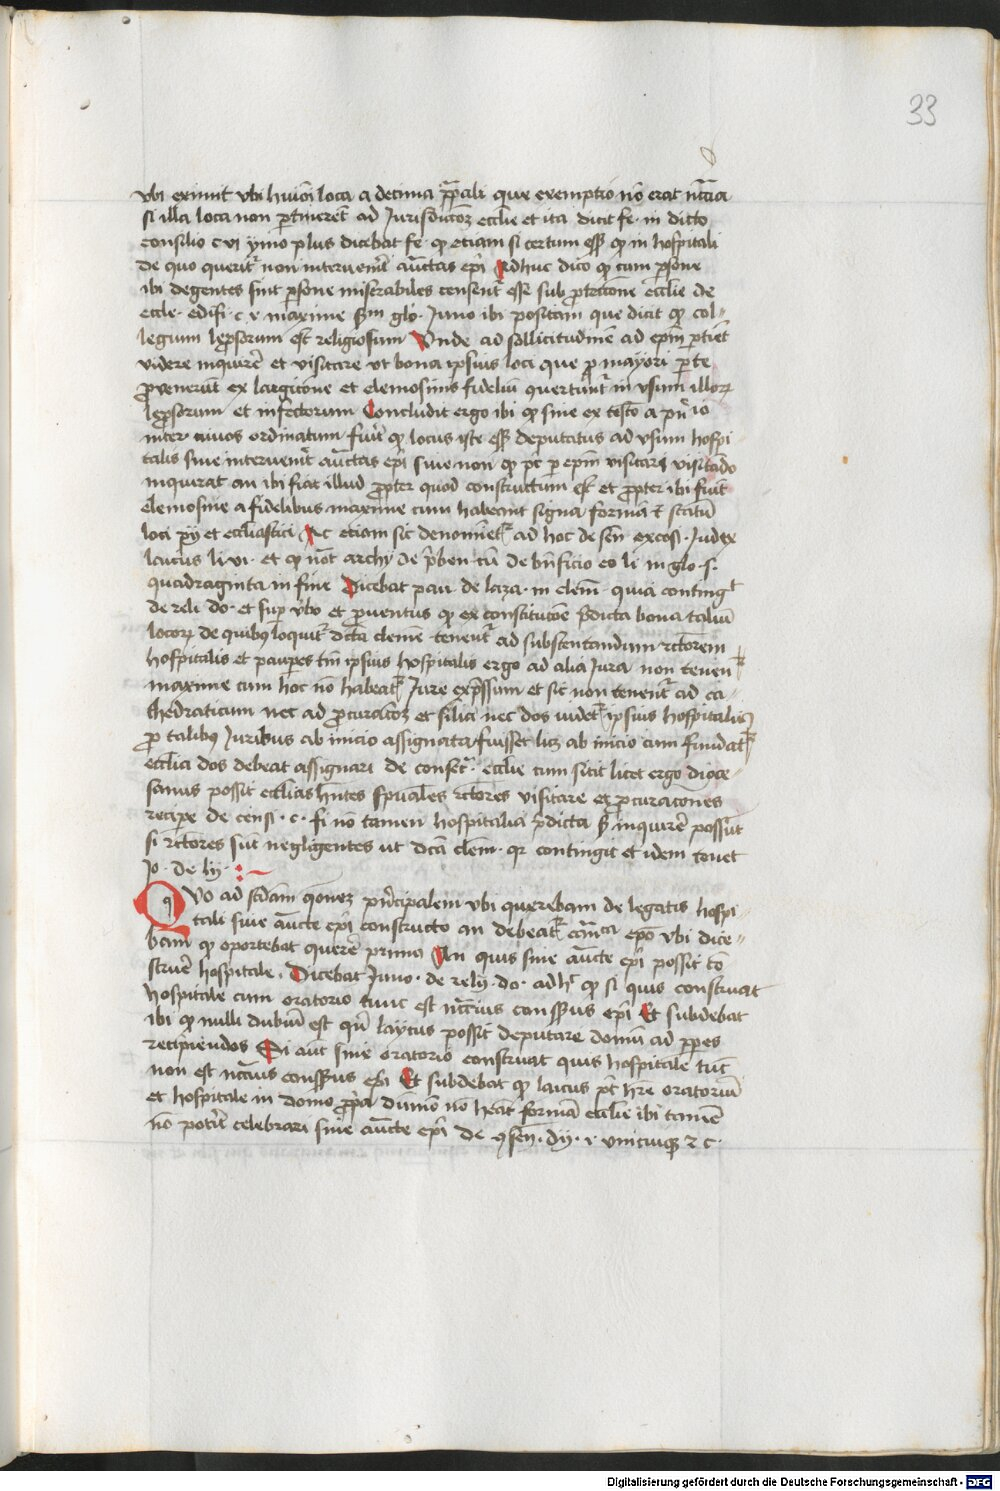 33
vbi eximit vbi huiōi loca a decima p̄pali que exemptio nō erat nc̄cia
si illa loca non ptineret̄ ad Jurisdictōꝫ eccl̄ie et ita dicit fe· in dicto
consilio c vi ymo plus dicebat fe· qꝫ etiam si certum eſſꝫ qꝫ in hospitali
de quo querit̄ non interuenīſ auc̄tas ep̄i Adhuc dico qꝫ cum p̄sone
ibi degentes sint p̄sone miserabiles censent̄ esse sub p̄tectione eccl̄ie de
eccle· edifi· c v· maxime sm̄ glo· Juno ibi positam que dicit qꝫ col-
legium lep̄sorum est religiosum Vnde ad sollicitudinē ad ep̄m ptiet̄
videre inquirē et visitare vt bona ipsius loci que p mayori pte
p̄uenerūt ex largicōne et elemosinis fideliū quertunt̄ in vsum illoꝝ
lep̄sorum et infectorum Concludit ergo ibi qꝫ siue ex testō a
inter viuos ordinatum fuīt qꝫ locus iste eſſꝫ deputatus ad vsum hospi
talis siue interuenīt auc̄tas ep̄i siue non qꝫ pt̄ p ep̄m visitari visitādo
inquirat an ibi fiat illud p̄pter quod constructum eſt et p̄pter ibi fiūt
elemosine a fidelibus maxime cum habeant signa formā et statū
loci pij et eccl̄iastici Ac etiam sic denomīet̄ ad hoc de sen̄ excoi· Judex
laicus li vi· et qꝫ not̄ archy de p̄ben· tū de bn̄ficio eo li· in glo· s·
quadraginta in fine Dicebat pau de laza· in clem̄· quia continḡt
de reli do· et sup v̄bo et p̄uentus qꝫ ex constitucōe p̄dicta bona taliū
locoꝝ de quibꝰ loquit̄ dc̄ta clemē tenent̄ ad substentandum rc̄torem
hospitalis et paupes tm̄ ipsius hospitalis ergo ad alia Jura non tenen̄t
maxime cum hoc nō habeat̄ Jure exp̄ssum et sic non tenent̄ ad ca-
thedraticum nec ad p̄curatōꝫ et silia nec dos videt̄ ipsius hospitalis
p̄ talibꝰ Juribus ab inicio assignata fuisset lꝫ ab inicio cum fundat̄
eccl̄ia dos debeat assignari de consec̄· eccl̄ie cum sicut licet ergo dioce-
sanus possit eccl̄ias hn̄tes spūales rc̄tores visitare et p̄curacōnes
recipe de censi· c· fi nō tamen hospitalia p̄dicta sꝫ inquirē possūt
si rc̄tores sūt negligentes ut dc̄ā clem̄· qr contingit et idem tenet
Jo· de lij·
QVo ad sc̄dam qōneꝫ pn̄cipalem vbi querebam de legatis hospi
tali siue auc̄te ep̄i constructo an debeat̄ cano͞ica epō vbi dice-
bam qꝫ oportebat querē primo An quis sine auc̄te ep̄i possit cō
struē hospitale· Dicebat Juno· de relij· do· ad hꝰ qꝫ si quis construat
hospitale cum oratorio tunc est nc̄cius conss̄us ep̄i Et subdebat
ibi qꝫ nulli dubiū est qn̄ laycus possit deputare domū ad p̄pes
recipiendos Si aut sine oratorio construat quis hospitale tūc
non est nc̄cius conss̄us ep̄i Et subdebat qꝫ laicus pt̄ hr̄e oratoriū
et hospitale in domo p̄pa dūmō nō heāt formā eccl̄ie ibi tamē
nō potīt celebrari sine auc̄te ep̄i de ꝯsen̄· dij· v· vnicuiqꝫ ꝛc·
Digitalisierung gefördert durch die Deutsche Forschungsgemeinschaft - DFG